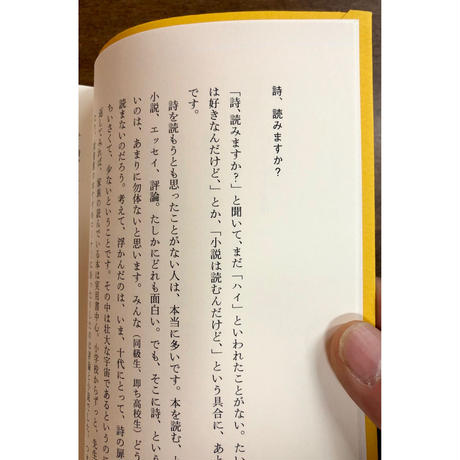 詩、読みますか？
「詩、読みますか？」と聞いて、まだ「ハイ」といわれたことがない。たい
は好きなんだけど、」とか、「小説は読むんだけど、」という具合に、あと
です。
詩を読もうとも思ったことがない人は、本当に多いです。本を読む、
小説、エッセイ、評論。たしかにどれも面白い。でも、そこに詩、という
いのは、あまりに勿体ないと思います。みんな（同級生、即ち高校生）どう
読まないのだろう。考えて、浮かんだのは、いま、十代にとって、詩の扉
ちいさくて、少ないということです。その中は壮大な宇宙であるというのに
返してみれば、家族の読んでいる本は実用書中心、小学校からずっと、先生